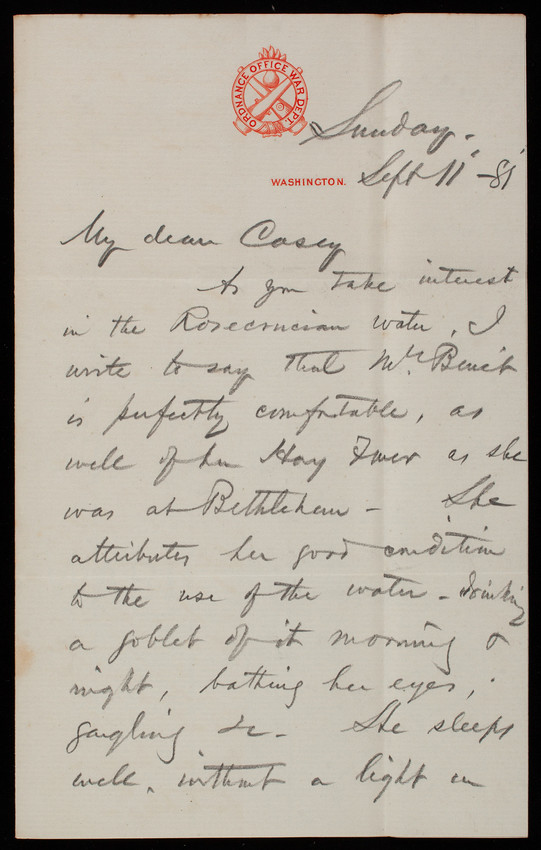 ORDNANCE OFFICE WAR DEPT.
Sunday.
WASHINGTON.
Sept 11 -81
My dear Casey
As you take interest
in the Rosecrucian water, I
write to say that Mrs. Benét
is perfectly comfortable, as
well of her Hay Fever as she
was at Bethlehem - She
attributes her good condition
to the use of the water - drinking
a goblet of it morning &
night, bathing her eyes,
gargling &c - She sleeps
well, without a light in